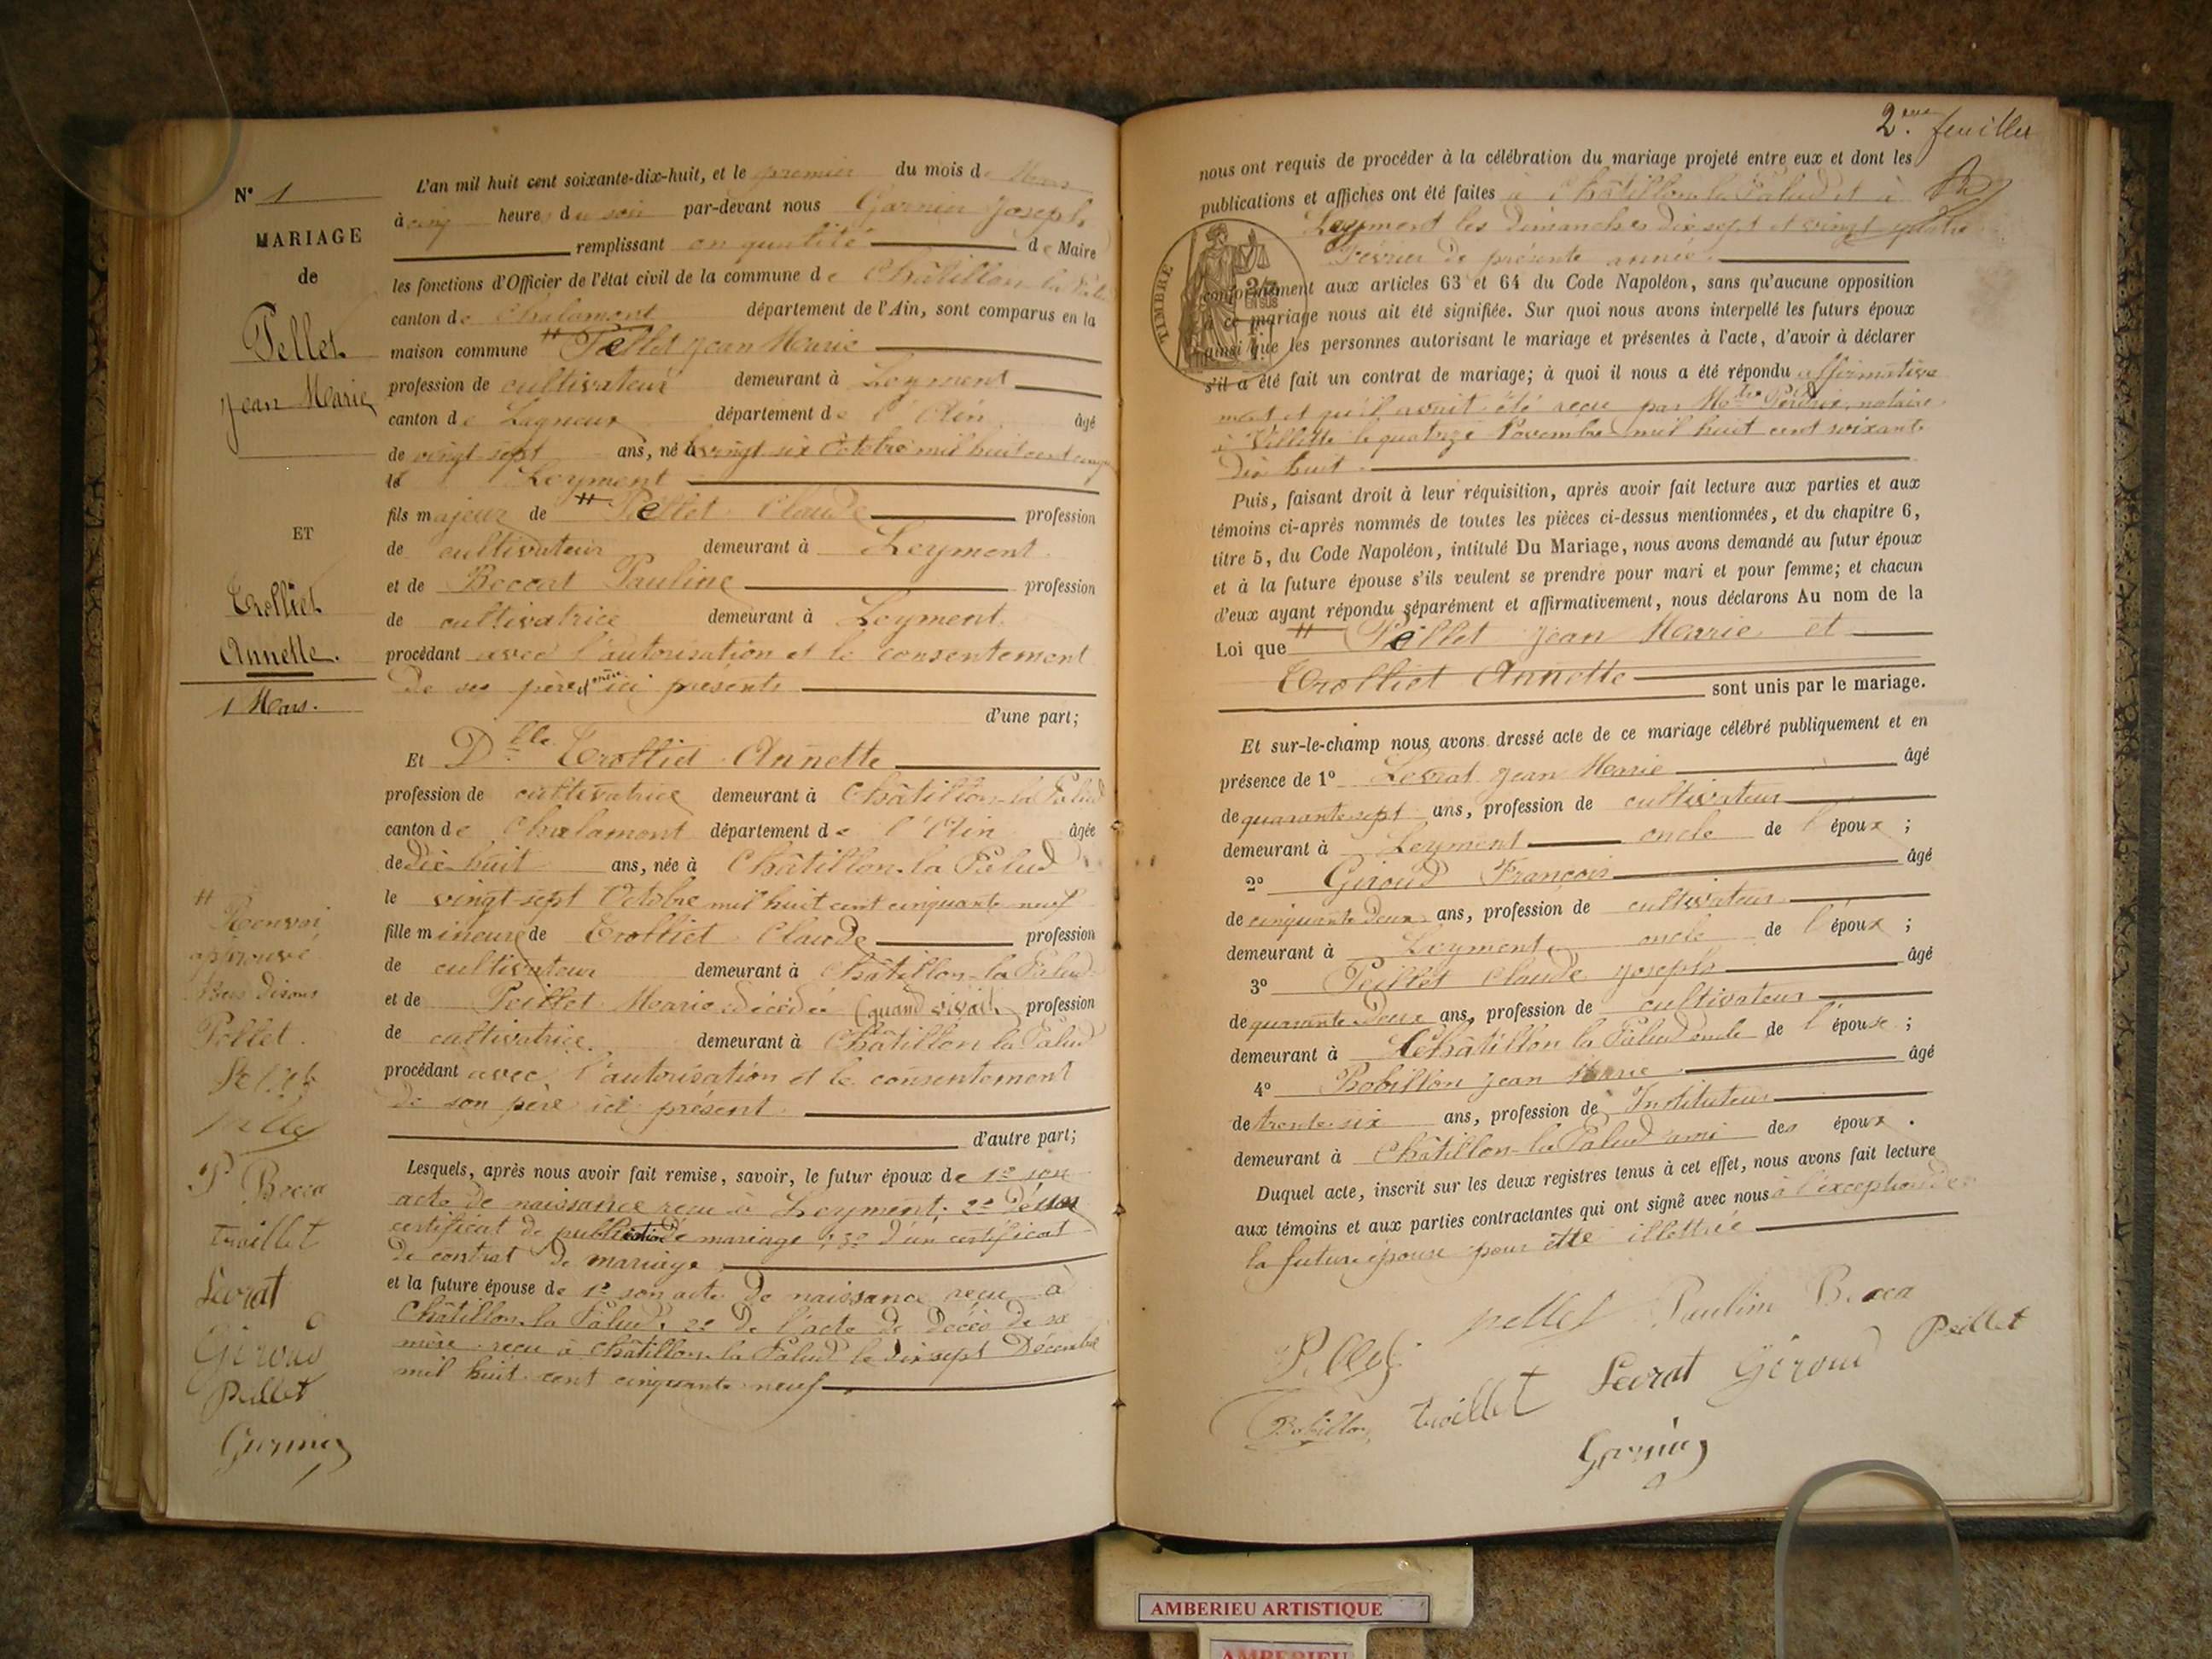 N° 1
MARIAGE
de
Pellet
Jean Marie
ET
Trolliet
Annette.
1 Mars.
L'an mil huit cent soixante-dix-huit, et le premier du mois de Mars
à cinq heures du soir par-devant nous Garnier Joseph
remplissant en qualité de Maire
les fonctions d'Officier de l'état civil de la commune de Châtillon-la-Palud
canton de Chalamont département de l'Ain, sont comparus en la
maison commune # Pellet Jean Marie
profession de cultivateur demeurant à Leyment
canton de Lagneux département de l'Ain âgé
de vingt-sept ans, né le vingt six Octobre mil huit cent cinq
Leyment
fils majeur de # Pellet Claude profession
de cultivateur demeurant à Leyment
et de Beccat Pauline profession
de cultivatrice demeurant à Leyment
procédant avec l'autorisation et le consentement
de ses père et mère ici présents
d'une part;
Et Dlle Trolliet Annette
profession de cultivatrice demeurant à Châtillon-la-Palud
canton de Chalamont département de l'Ain âgée
de dix huit ans, née à Châtillon-la-Palud
le vingt-sept Octobre mil huit cent cinquante neuf
fille mineure de Trolliet Claude profession
de cultivateur demeurant à Châtillon-la-Palud
et de Peillet Marie décédée (quand vivait profession
de cultivatrice demeurant à Châtillon la Palud
procédant avec l'autorisation et le consentement
de son père ici présent
d'autre part;
Lesquels, après nous avoir fait remise, savoir, le futur époux de 1° son
acte de naissance reçu à Leyment; 2° d'un
certificat de publication de mariage; 3° d'un certificat
de contrat de mariage
et la future épouse de 1° son acte de naissance reçu à
Châtillon-la-Palud; 2° de l'acte de décès de sa
mère reçu à Châtillon-la-Palud le dix sept Décembre
mil huit cent cinquante neuf
# Renvoi
approuvé
Pellet.
pellet
P Becca
trolliet
Levrat
Giroud
Peillet
Garnier
2eme feuillet
nous ont requis de procéder à la célébration du mariage projeté entre eux et dont les
publications et affiches ont été faites à Châtillon-la-Palud et à
Leyment les dimanches dix sept et vingt quatre
Février de présente année.
TIMBRE
conformément aux articles 63 et 64 du Code Napoléon, sans qu'aucune opposition
à ce mariage nous ait été signifiée. Sur quoi nous avons interpellé les futurs époux
ainsi que les personnes autorisant le mariage et présentes à l'acte, d'avoir à déclarer
s'il a été fait un contrat de mariage; à quoi il nous a été répondu affirmative
ment et qu'il avait été reçu par notaire
à Villette le quatorze Novembre mil huit cent soixante
dix huit
Puis, faisant droit à leur réquisition, après avoir fait lecture aux parties et aux
témoins ci-après nommés de toutes les pièces ci-dessus mentionnées, et du chapitre 6,
titre 5, du Code Napoléon, intitulé Du Mariage, nous avons demandé au futur époux
et à la future épouse s'ils veulent se prendre pour mari et pour femme; et chacun
d'eux ayant répondu séparément et affirmativement, nous déclarons Au nom de la
Loi que # Pellet Jean Marie et
Trolliet Annette
sont unis par le mariage.
Et sur-le-champ nous avons dressé acte de ce mariage célébré publiquement et en
présence de 1° Levrat Jean Marie âgé
de quarante sept ans, profession de cultivateur
demeurant à Leyment oncle de l'époux;
2° Giroud François âgé
de cinquante deux ans, profession de cultivateur
demeurant à Leyment oncle de l'époux;
3° Peillet Claude Joseph âgé
de quarante deux ans, profession de cultivateur
demeurant à Châtillon la Palud oncle de l'épouse;
4° Bobillon Jean Marie âgé
de trente six ans, profession de Instituteur
demeurant à Châtillon-la-Palud ami des époux.
Duquel acte, inscrit sur les deux registres tenus à cet effet, nous avons fait lecture
aux témoins et aux parties contractantes qui ont signé avec nous à l'exception de
la future épouse pour être illettrée
Pellet pellet Pauline Becca
Bobillon trolliet Levrat Giroud Peillet
Garnier
AMBERIEU ARTISTIQUE
AMBERIEU